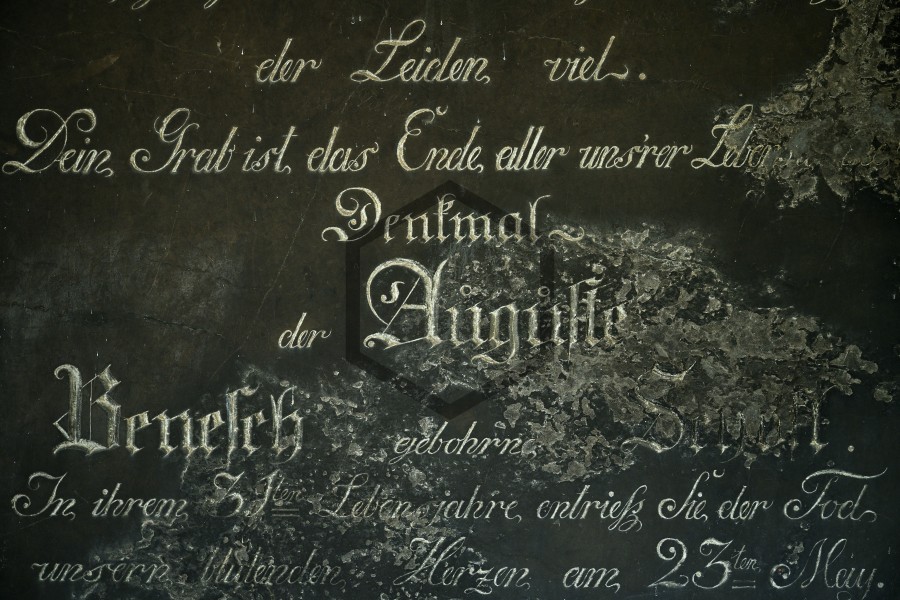 der Leiden viel.
Dein Grab ist das Ende aller unsrer
Denkmal
der Auguste
Benesch gebohrne
In ihrem 31ten Lebensjahre entrieß Sie der Tod
unsern blutenden Herzen am 23ten May.